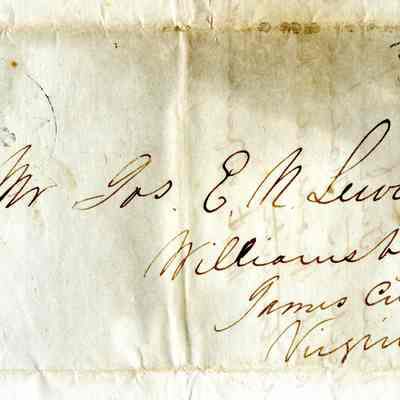 Mr Jos. E. N. Lewi
Williamsb
James Ci
Virgini